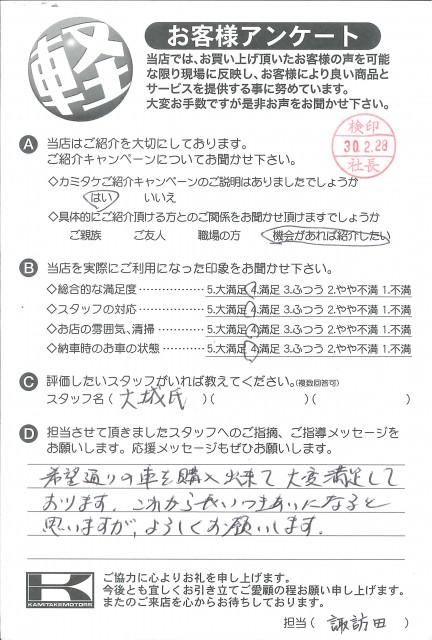 軽
お客様アンケート
当店では、お買い上げ頂いたお客様の声を可能
な限り現場に反映し、お客様により良い商品と
サービスを提供する事に努めています。
大変お手数ですが是非お声をお聞かせ下さい。
検印
30.2.28
社長
A 当店はご紹介を大切にしております。
ご紹介キャンペーンについてお聞かせ下さい。
◇カミタケご紹介キャンペーンのご説明はありましたでしょうか
はい いいえ
◇具体的にご紹介頂ける方とのご関係をお聞かせ頂けますでしょうか
ご親族 ご友人 職場の方 機会があれば紹介したい
B 当店を実際にご利用になった印象をお聞かせ下さい。
◇総合的な満足度 …………… 5.大満足 4.満足 3.ふつう 2.やや不満 1.不満
◇スタッフの対応 …………… 5.大満足 4.満足 3.ふつう 2.やや不満 1.不満
◇お店の雰囲気、清掃 ……… 5.大満足 4.満足 3.ふつう 2.やや不満 1.不満
◇納車時のお車の状態 ……… 5.大満足 4.満足 3.ふつう 2.やや不満 1.不満
C 評価したいスタッフがいれば教えてください。(複数回答可)
スタッフ名 ( 大城氏 )( )( )
D 担当させて頂きましたスタッフへのご指摘、ご指導メッセージを
お願いします。応援メッセージもぜひお願いします。
希望通りの車を購入出来て大変満足して
おります。これから長いつきあいになると
思いますが、よろしくお願いします。
K
KAMITAKEMOTORS
ご協力に心よりお礼を申し上げます。
今後とも宜しくお引き立てご愛顧の程お願い申し上げます。
またのご来店を心からお待ちしております。
担当 ( 諏訪田 )